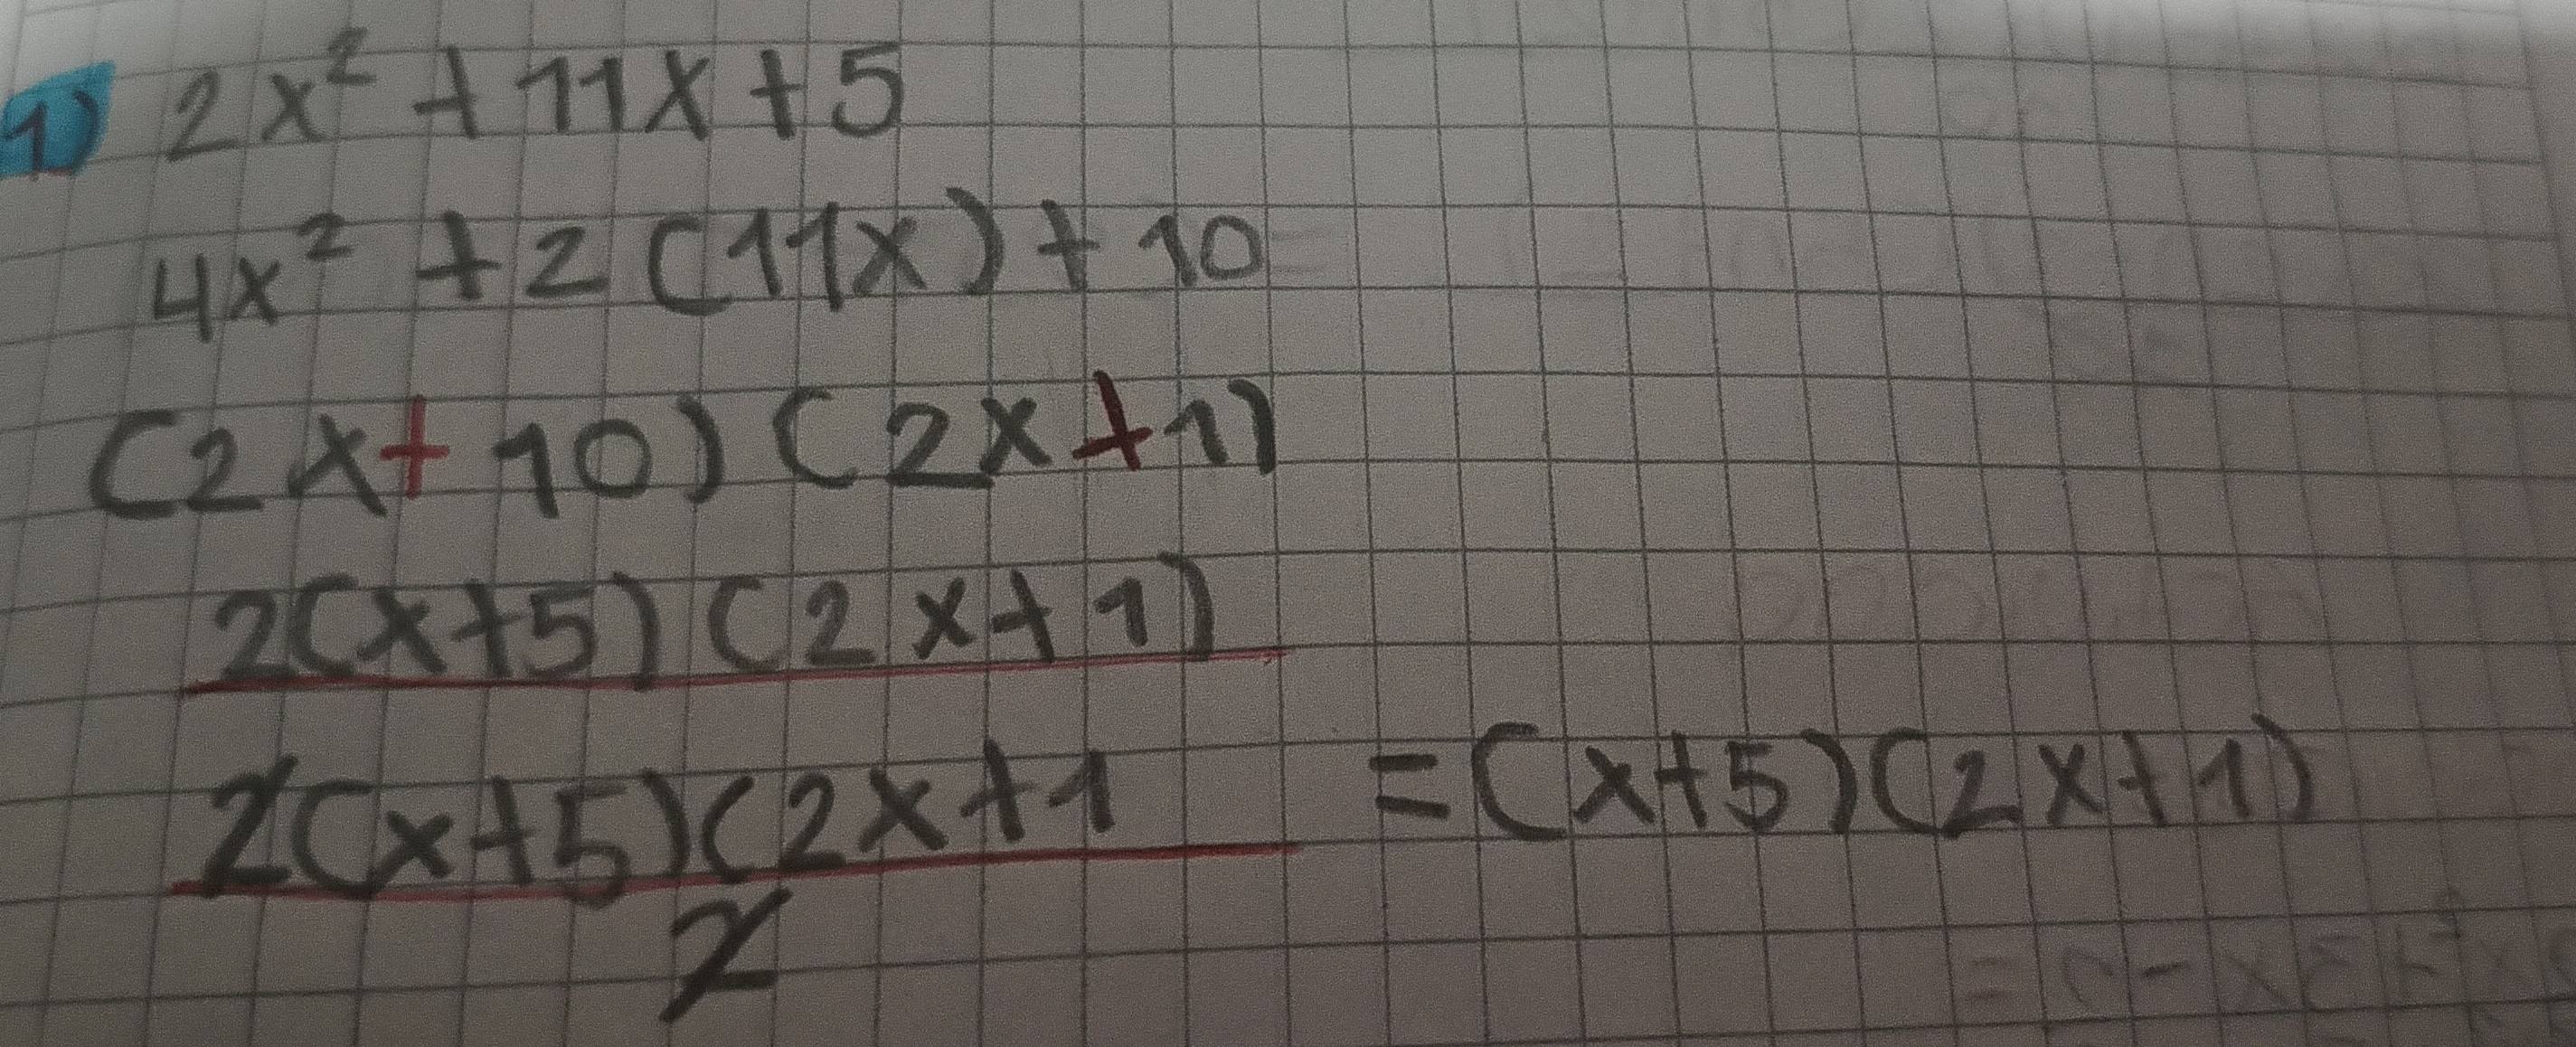 1) 2x² + 11x + 5
4x² + 2(11x) + 10 =
(2x + 10)(2x + 1)
2(x+5)(2x+1)
2(x+5)(2x+1 = (x+5)(2x+1)
2